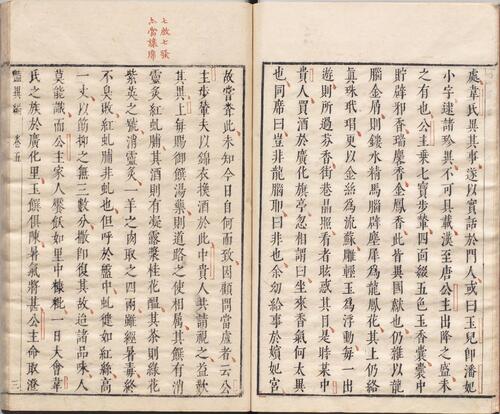 處韋氏異其事遂以實話於門人或曰玉兒卽潘妃
小字逮諸珍異不可具載漢至唐公主出降之盛未
之有也公主乗七寶步輦四面綴五色玉香囊囊中
貯辟邪香瑞麐香金鳳香此皆異國獻也仍雜以龍
腦金屑則鏤水精馬腦辟塵犀為龍鳳花其上仍絡
真珠玳瑁更以金絲為流蘇雕輕玉為浮動每一出
遊則所過芬香街巷晶照看者眩惑其目是時某中
貴人買酒於廣化旗亭忽相謂曰坐來香氣何太異
也同席曰豈非龍腦耶曰非也余幼給事於嬪妃宮
七啟七發
亦當讓席
故常聞此未知今日自何而致因顧問當壚者云公
主步輦夫以錦衣換酒於此中貴人共請視之益歎
其異上每賜御饌湯藥則道路之使相屬其饌有消
靈炙紅虬脯其酒則有凝露漿桂花醞其茶則綠花
紫英之號消靈炙一羊之肉取之四兩雖經暑毒終
不臭敗紅虬脯非虬也但貯於盤中虬健如紅絲高
一丈以筯抑之無三數分撤卽復其故迨諸品味人
莫能識而公主家人饜飫如里中糠粃一日大會韋
氏之族於廣化里玉饌俱陳暑氣將甚公主命取澄
艷異編 卷五 三